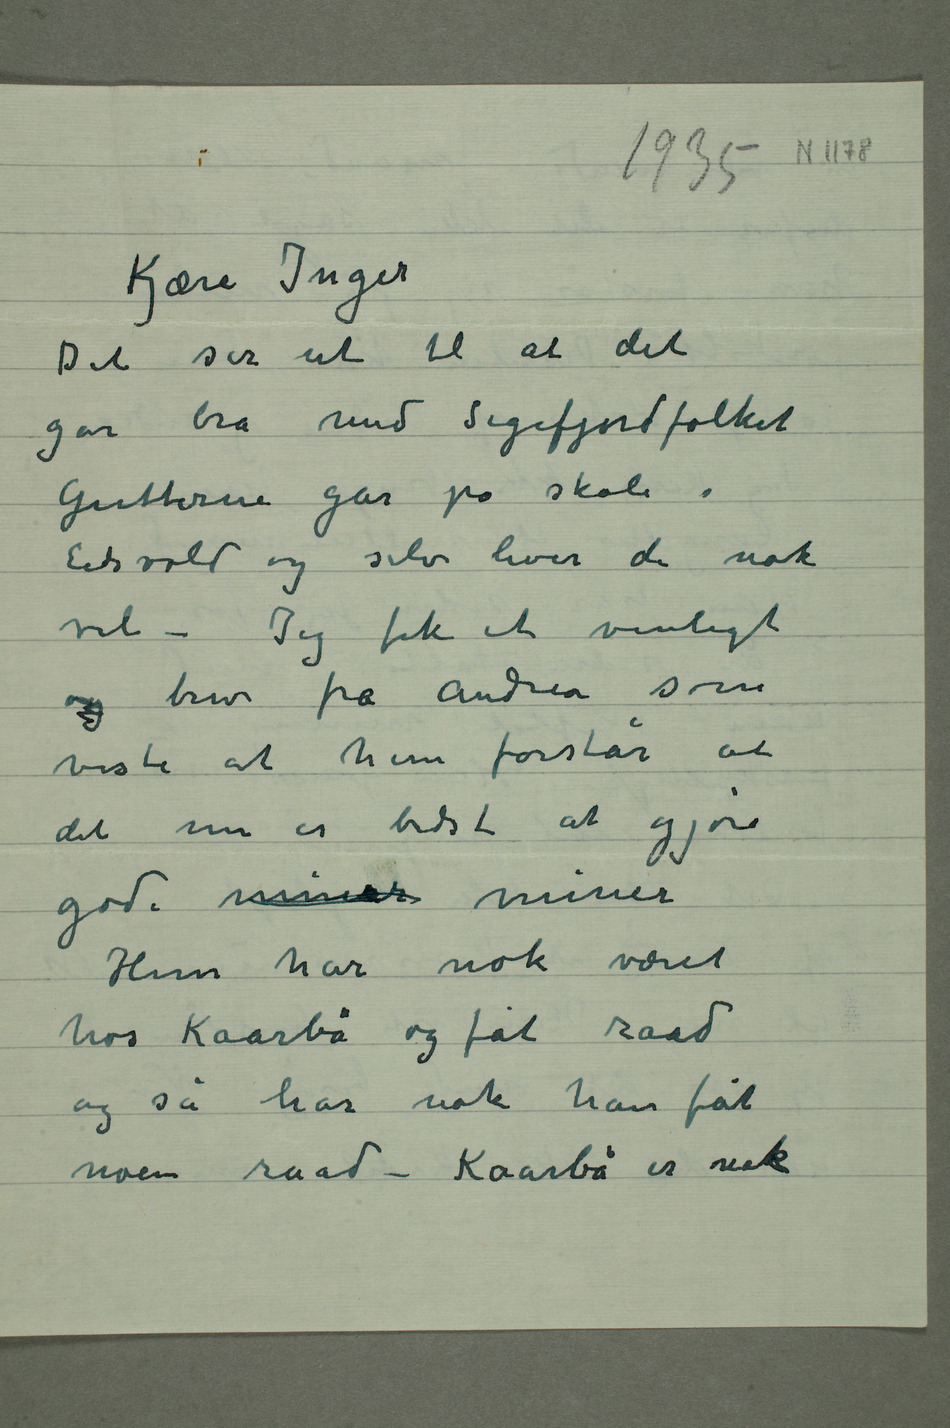 1935 N 1178
Kjære Inger
Det ser ut til at det
gar bra med Sigefjordfolket
Gutterne gar pa skole i
Eidsvold og selv lever de nok
vel – Jeg fik et venligt
og brev fra Andrea som
viste at hun forstår at
det nu er bedst at gjøre
gode miner miner
Hun har nok været
hos Kaarbå og fåt raad
og så har nok han fåt
noen raad – Kaarbå er nok